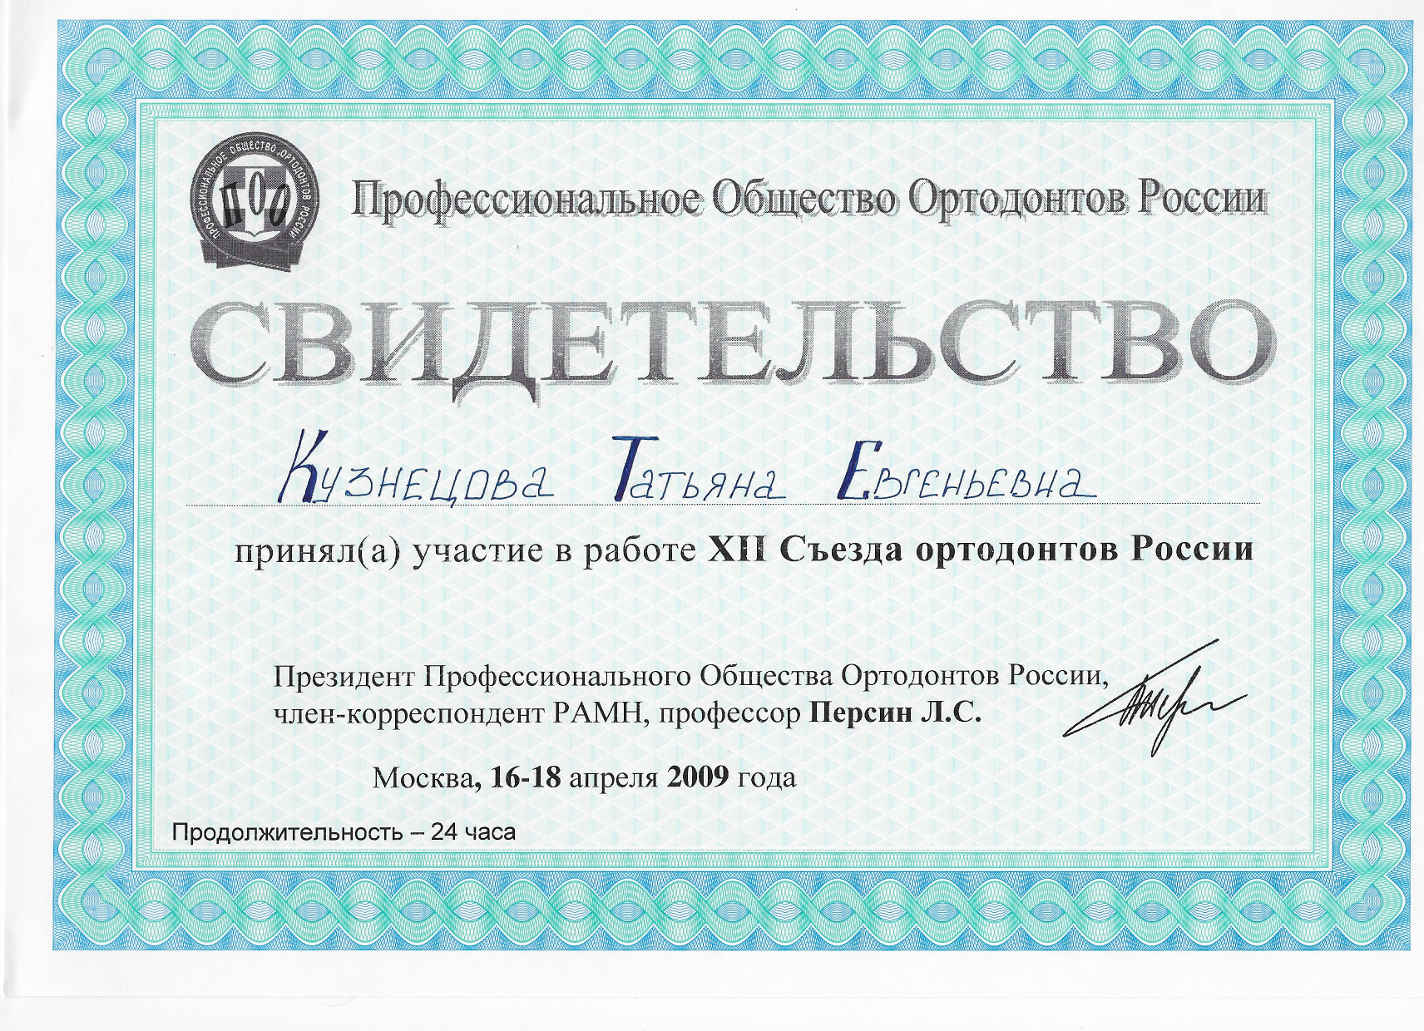 ПРОФЕССИОНАЛЬНОЕ ОБЩЕСТВО ОРТОДОНТОВ РОССИИ
ПОО
Профессиональное Общество Ортодонтов России
СВИДЕТЕЛЬСТВО
Кузнецова Татьяна Евгеньевна
принял(а) участие в работе XII Съезда ортодонтов России
Президент Профессионального Общества Ортодонтов России,
член-корреспондент РАМН, профессор Персин Л.С.
Москва, 16-18 апреля 2009 года
Продолжительность – 24 часа